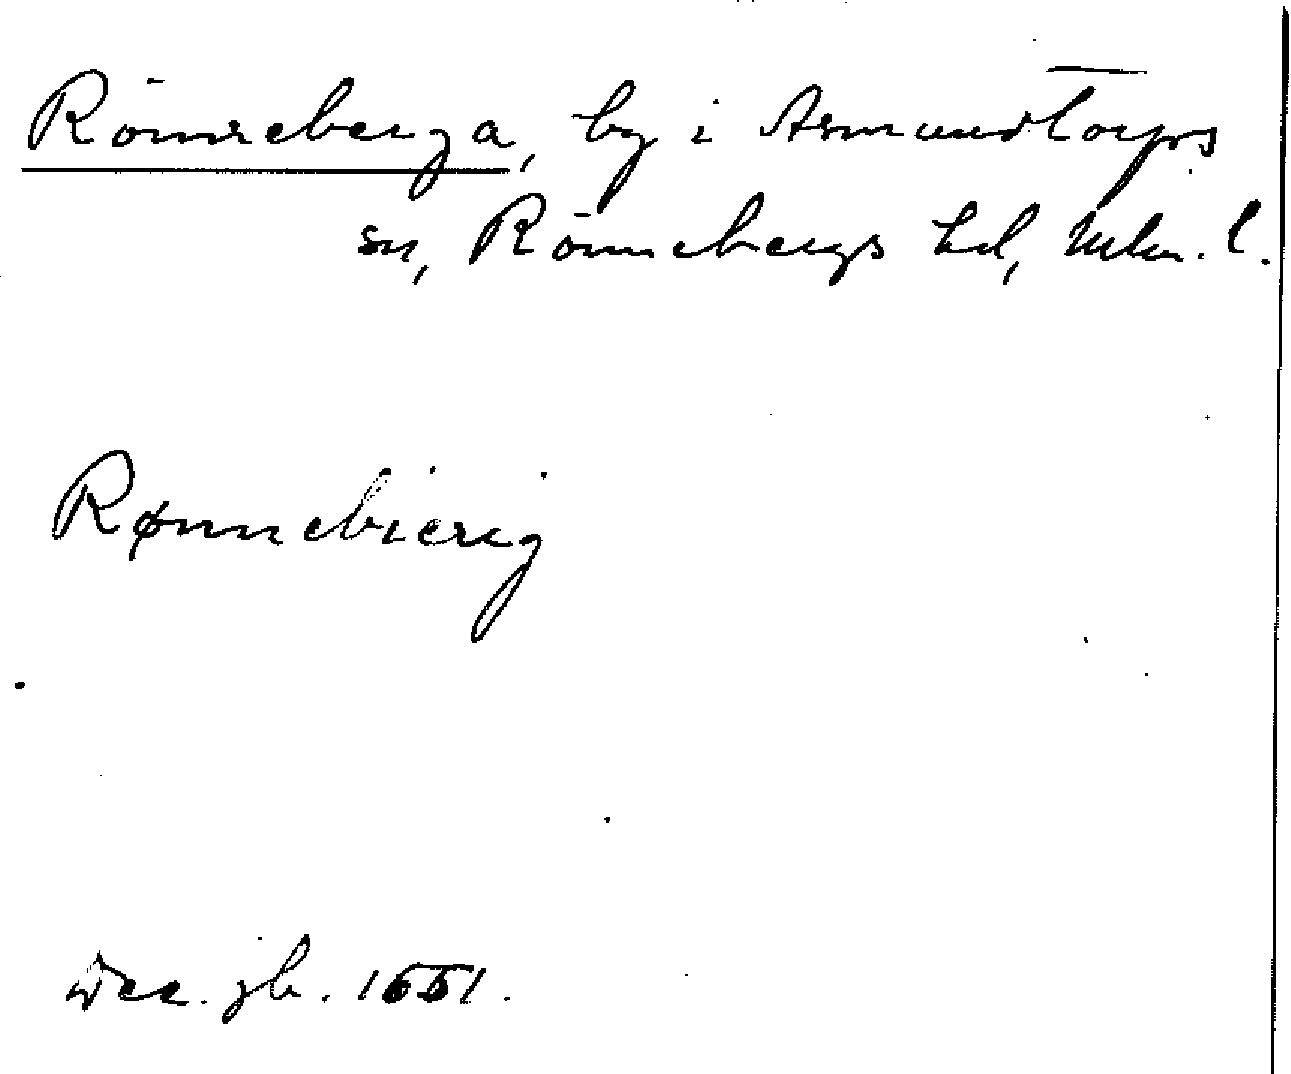 Rönneberga, by i Asmundtorps
sn, Rönnebergs hd, Mlm. l.
Rønnebierig
Dec. jb. 1651.